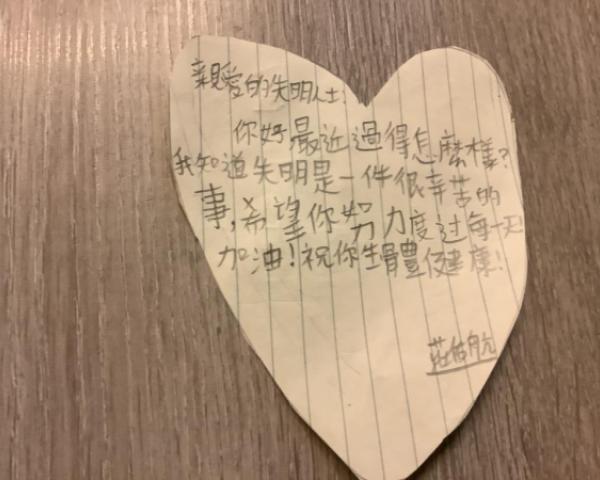 親愛的失明人士:
你好最近過得怎麼樣?
我知道失明是一件很辛苦的
事,希望你努力度过每一天!
加油!祝你生體健康!